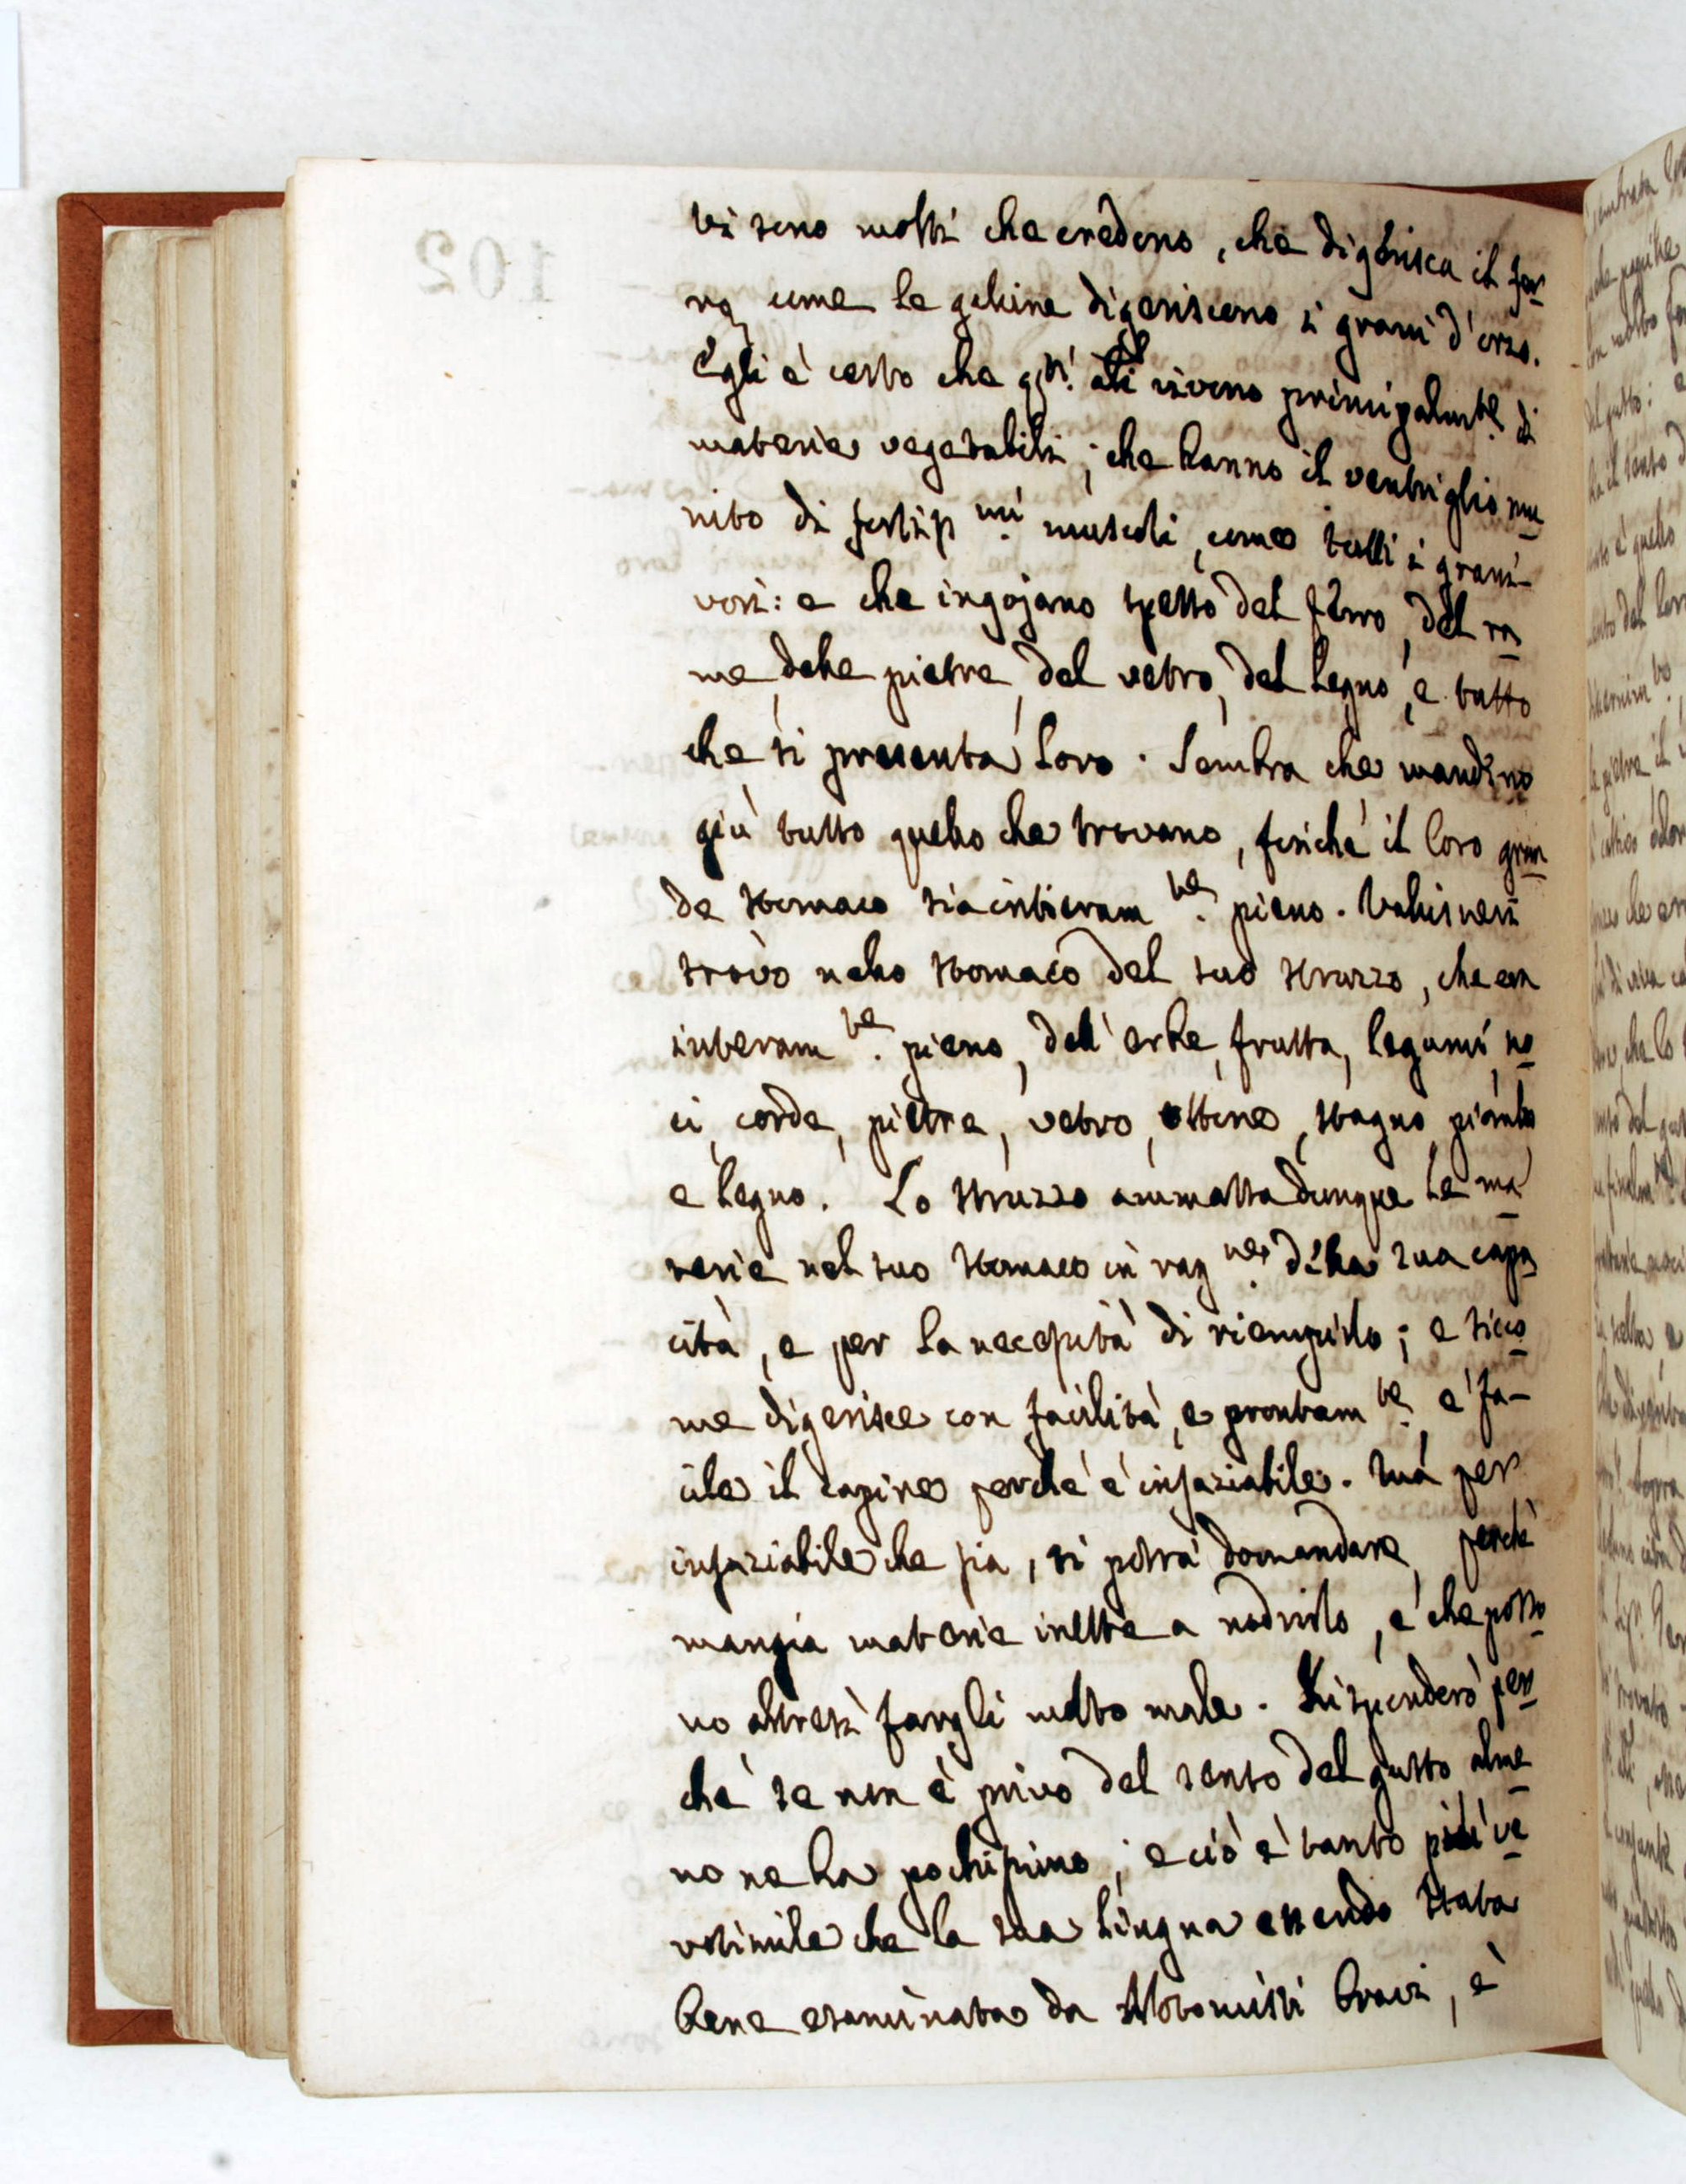 Vi sono molti che credono, che digerisca il fer
ro, come le galline digeriscono i grani d'orzo.
Egli è certo che q.sti ali vivono principalm.te di
materie vegetabili; che hanno il ventriglio mu
nito di fortiss.mi muscoli, come tutti i grani-
vori: e che ingojano spesso del ferro, del ra
me, delle pietre, del vetro, del legno, e tutto
che si presenta loro. Sembra che mandino
giù tutto quello che trovano, finchè il loro gran
de stomaco sia intieram.te pieno. Vallisneri
trovò nello stomaco del suo struzzo, che era
interam.te pieno, dell'erbe, frutta, legumi, no
ci, corde, pietre, vetro, ottone, stagno, piombo
e legno. Lo struzzo ammassa dunque le ma
terie nel suo stomaco in rag.ne della sua capa
cità, e per la necessità di riempirlo; e sicco
me digerisce con facilità, e prontam.te, è fa-
cile il capire perchè è insaziabile. Ma per
insaziabile che sia, si potrà domandare, perchè
mangia materie inette a nodrirlo, e che posso
no altresì fargli molto male. Risponderò per
chè se non è privo del senso del gusto, alme
no ne ha pochissimo; e ciò è tanto più ve
risimile che la sua lingua essendo stata
bene esaminata da Notomisti bravi, è
102